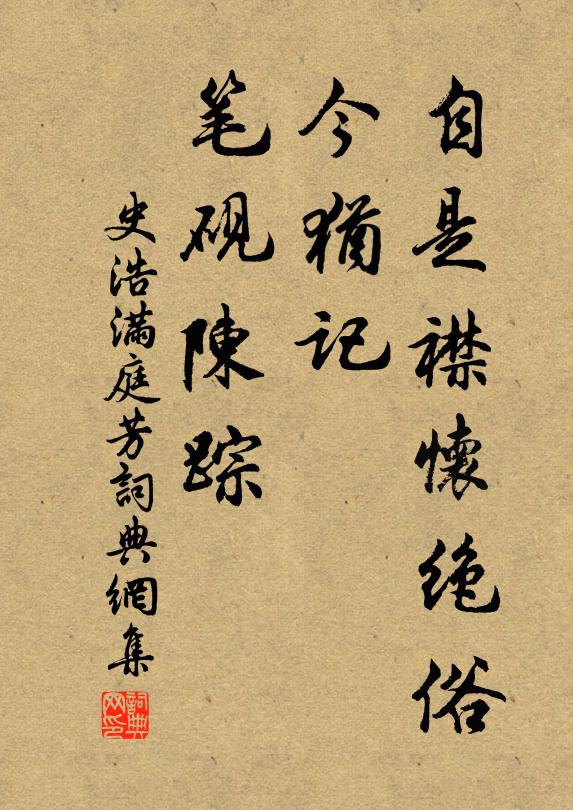 自是襟懷绝俗
今猶记
笔砚陳踪
史浩滿庭芳詞典網集
詞典网印